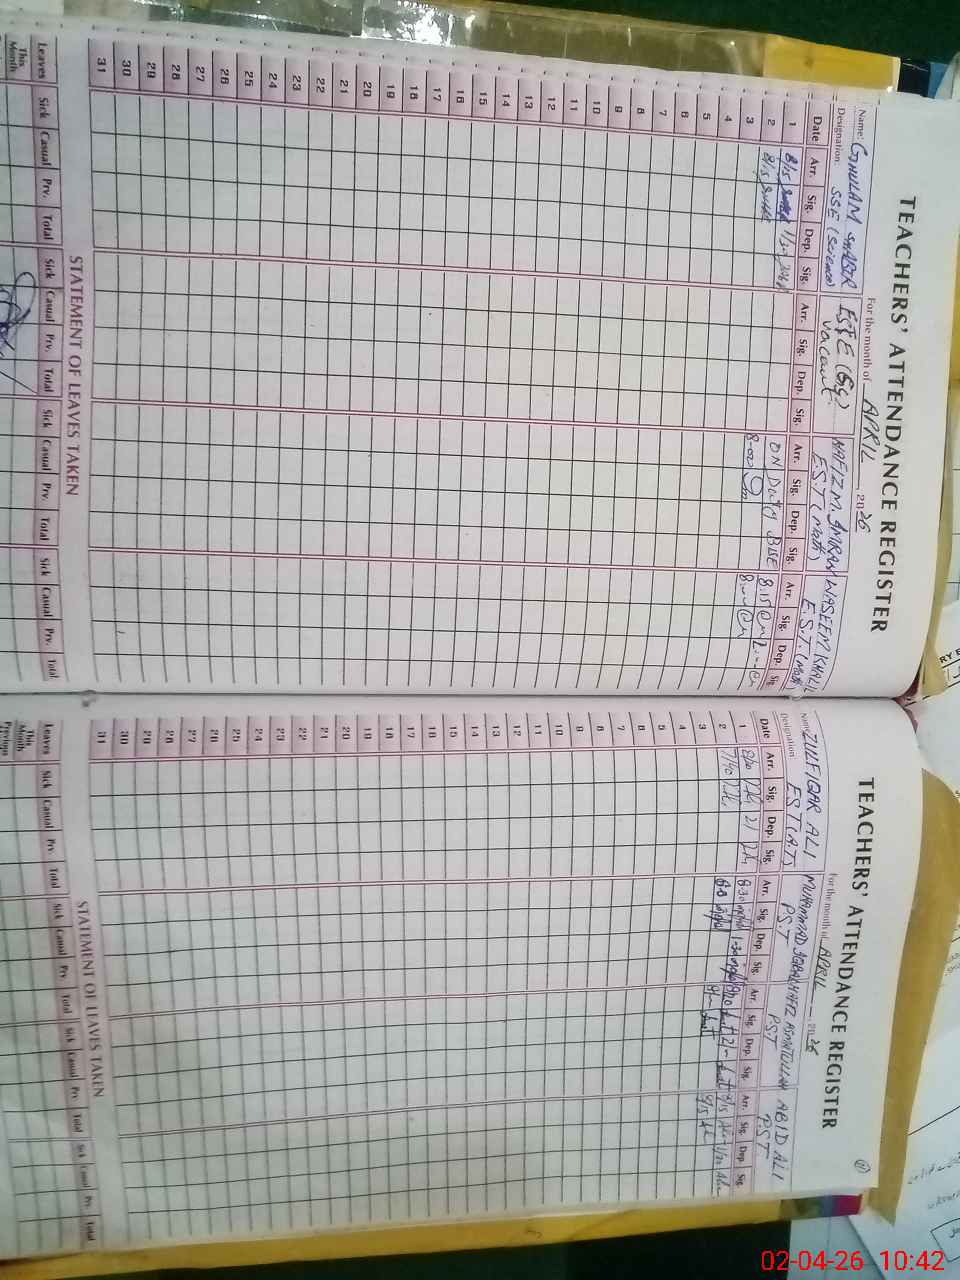 TEACHERS' ATTENDANCE REGISTER
For the month of APRIL 2026
Name: GHULAM SHABIR
Designation: SSE (Science)
ESE (Sci) Vacant
HAFIZ M. IMRAN
E.S.T (Math)
WASEEM KHALIL
E.S.T. (Math)
Date Arr. Sig. Dep. Sig. Arr. Sig. Dep. Sig. Arr. Sig. Dep. Sig. Arr. Sig. Dep. Sig.
1 8/15 ON Duty BISE 8.15
2 8/15 8.00 8.00
3
4
5
6
7
8
9
10
11
12
13
14
15
16
17
18
19
20
21
22
23
24
25
26
27
28
29
30
31
STATEMENT OF LEAVES TAKEN
Leaves Sick Casual Prv. Total Sick Casual Prv. Total Sick Casual Prv. Total Sick Casual Prv. Total
This Month
TEACHERS' ATTENDANCE REGISTER
For the month of APRIL 2026
Name: ZULFIQAR ALI
Designation: EST (A.T)
MUHAMMAD IQBAL
P.S.T
HAFIZ ASMATULLAH
P.S.T
ABID ALI
P.S.T
Date Arr. Sig. Dep. Sig. Arr. Sig. Dep. Sig. Arr. Sig. Dep. Sig. Arr. Sig. Dep. Sig.
1 8-30 1-30
2 7/40 8-30 8/15
3
4
5
6
7
8
9
10
11
12
13
14
15
16
17
18
19
20
21
22
23
24
25
26
27
28
29
30
31
STATEMENT OF LEAVES TAKEN
Leaves Sick Casual Prv. Total Sick Casual Prv. Total Sick Casual Prv. Total Sick Casual Prv. Total
This Month
Previous
02-04-26 10:42